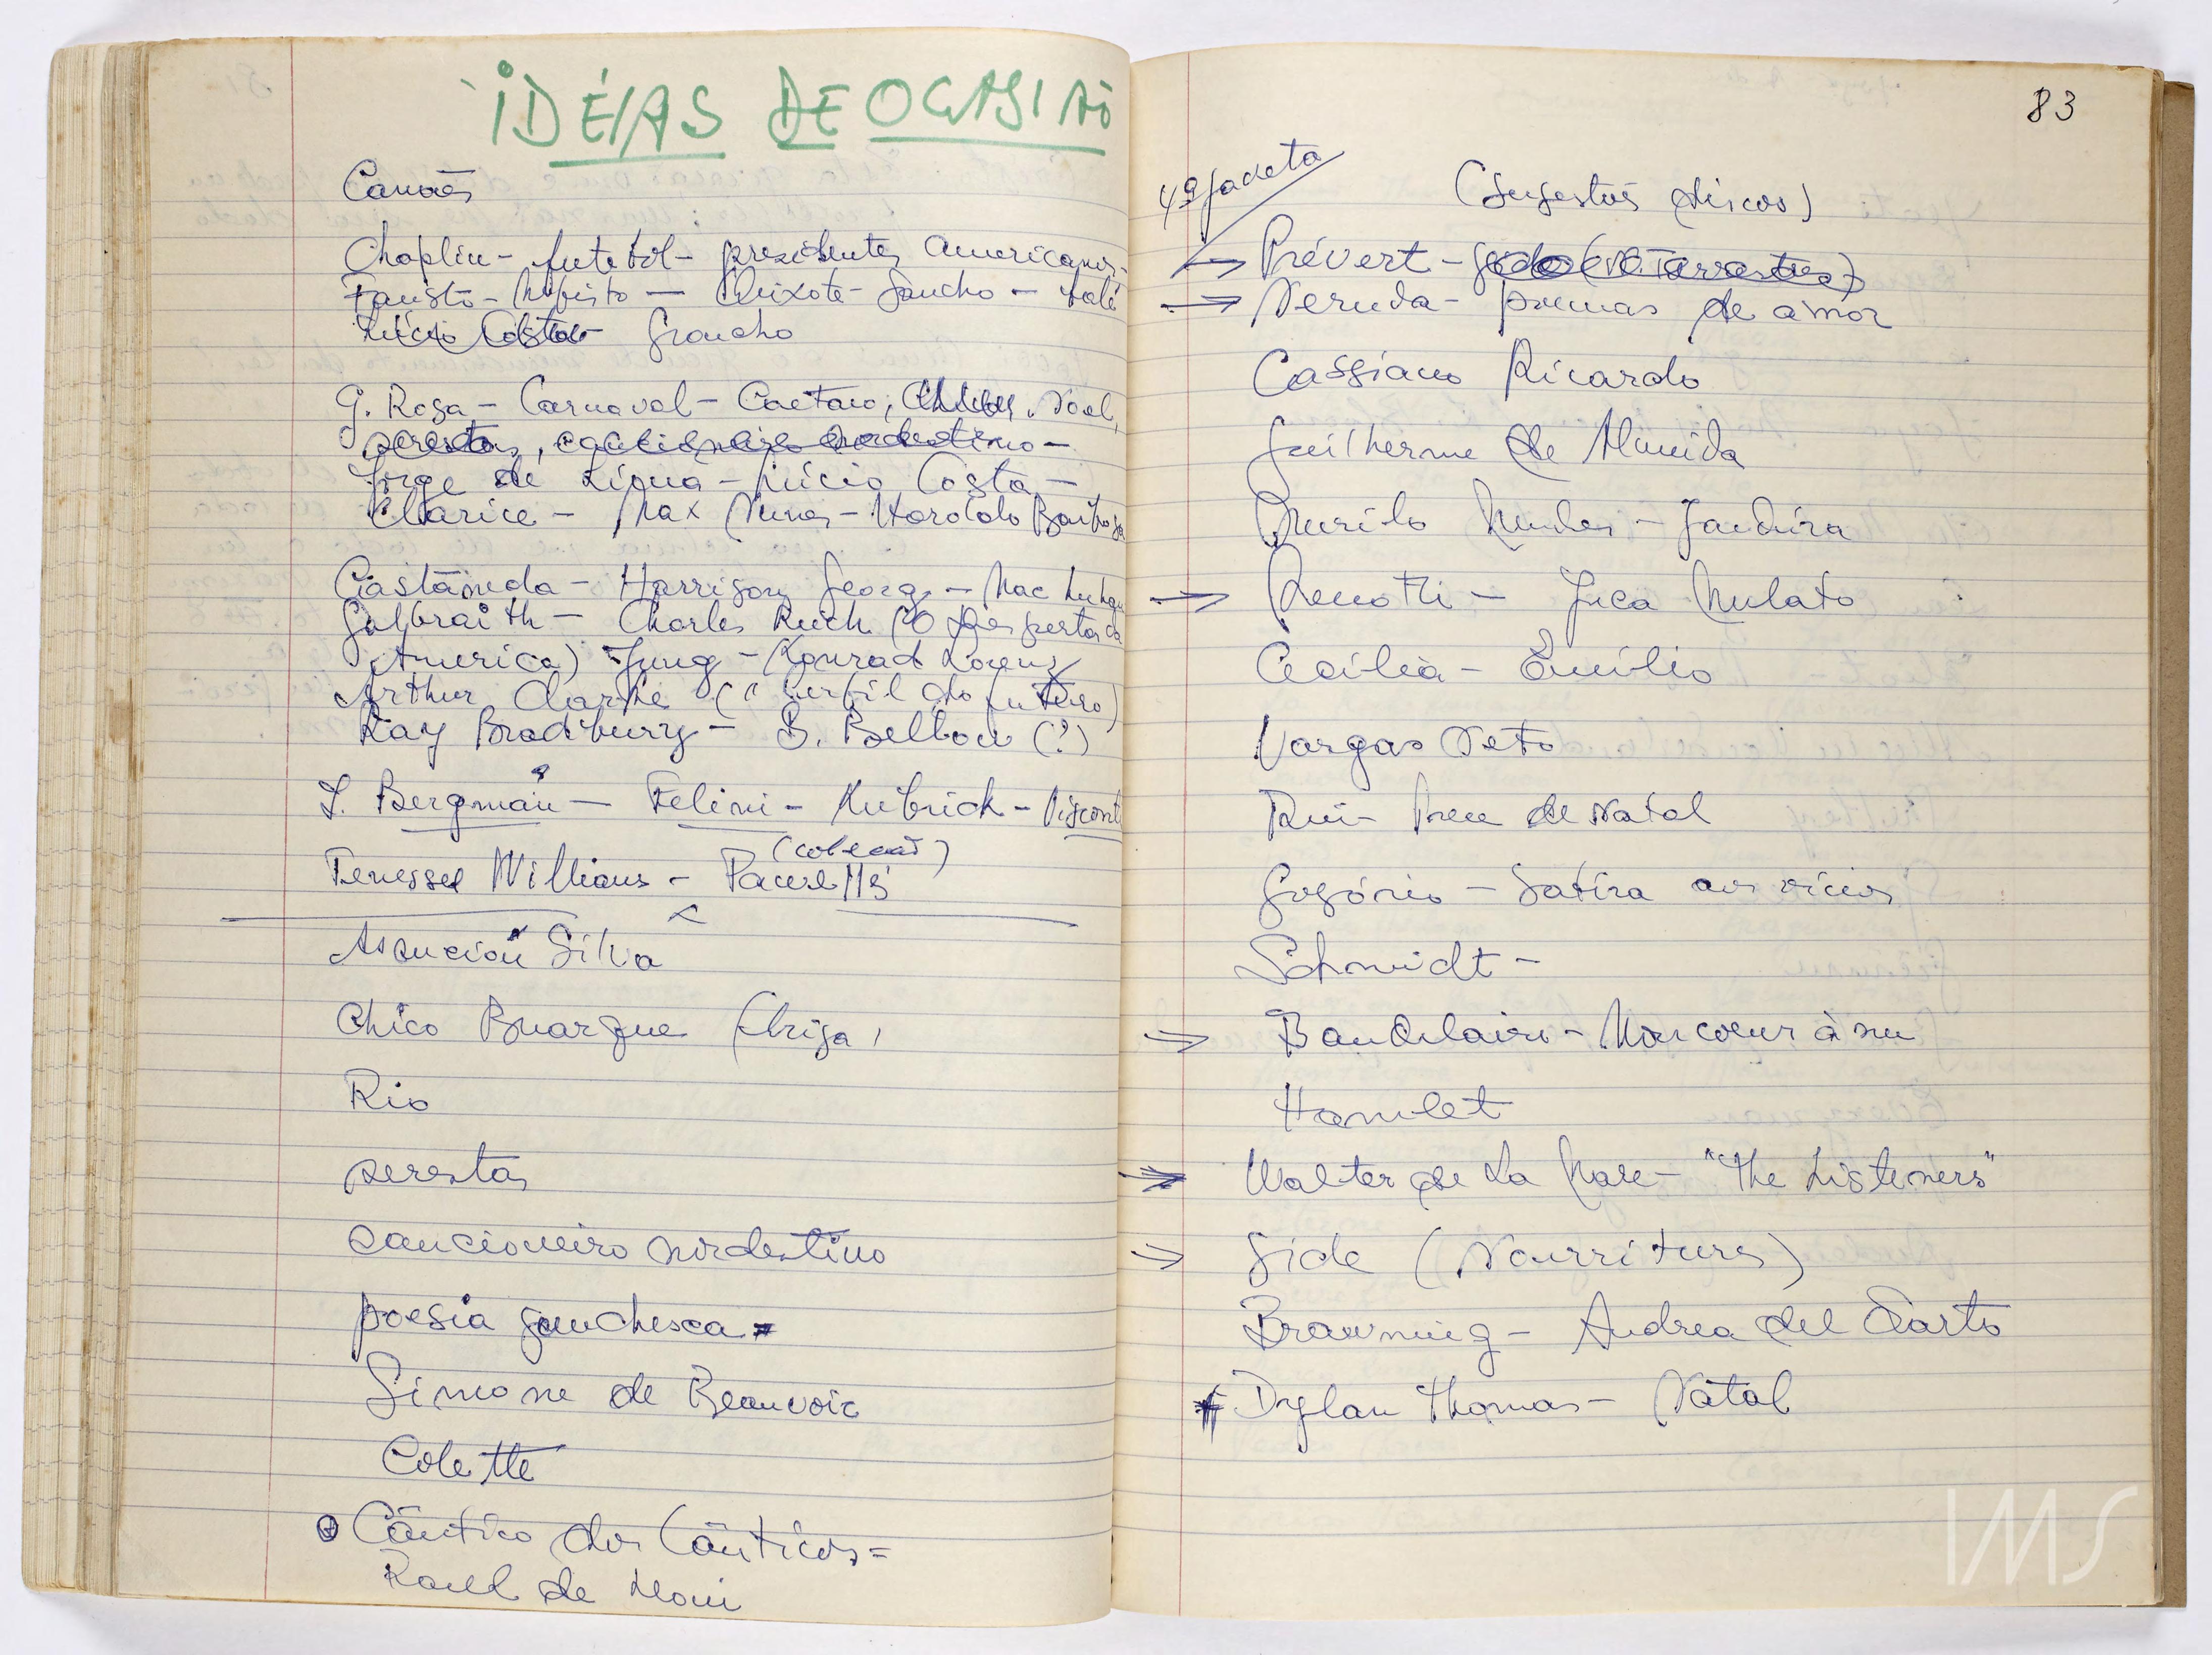 IDÉIAS DE OCASIÃO
Camões
Chaplin - futebol - presidentes americanos -
Fausto - Mefisto - Quixote - Sancho - Pelé
Lúcio Costa - Groucho
G. Rosa - Carnaval - Caetano, Chico, Noel,
serestas, cancioneiro nordestino -
Jorge de Lima - Lúcio Costa -
Clarice - Max Nunes - Haroldo Barbosa
Castañeda - Harrison, George - Mac Luhan
Galbraith - Charles Reich (O Despertar da
America) Jung - Konrad Lorenz
Arthur Clarke ("Perfil do futuro)
Ray Bradburry - S. Bellow (?)
I. Bergman - Felini - Kubrick - Visconti
(coleção)
Tenessee Williams - Pawells
Asunción Silva
Chico Buarque
Rio
serestas
cancioneiro nordestino
poesia gauchesca =
Simone de Beauvoir
Colette
Cântico dos Cânticos =
Raul de Leoni
83
4ª gaveta
(Sugestões discos)
→ Prévert -
→ Neruda - poemas de amor
Cassiano Ricardo
Guilherme de Almeida
Murilo Mendes - Jandira
→ Menotti - Juca Mulato
Cecília - Emílio
Vargas Neto
Rui - Prece de Natal
Gregório - Satira aos vícios
Schmidt -
→ Baudelaire - Mon coeur à nu
Hamlet
→ Walter de La Mare - "The Listeners"
→ Gide (Nourritures)
Browning - Andrea del Sarto
Dylan Thomas - Natal
IMS